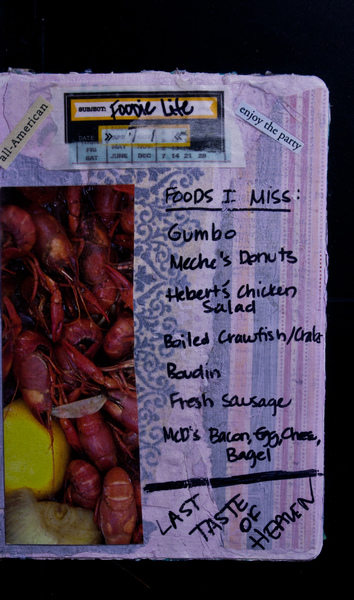 SUBJECT: Foodie Life
all-American
enjoy the party
DATE:
FRI
SAT JUNE DEC 7 14 21 28
FOODS I MISS:
Gumbo
Meche's Donuts
Hebert's Chicken
Salad
Boiled Crawfish/Crabs
Boudin
Fresh Sausage
McD's Bacon, Egg, Cheese,
Bagel
LAST
TASTE
OF
HEAVEN